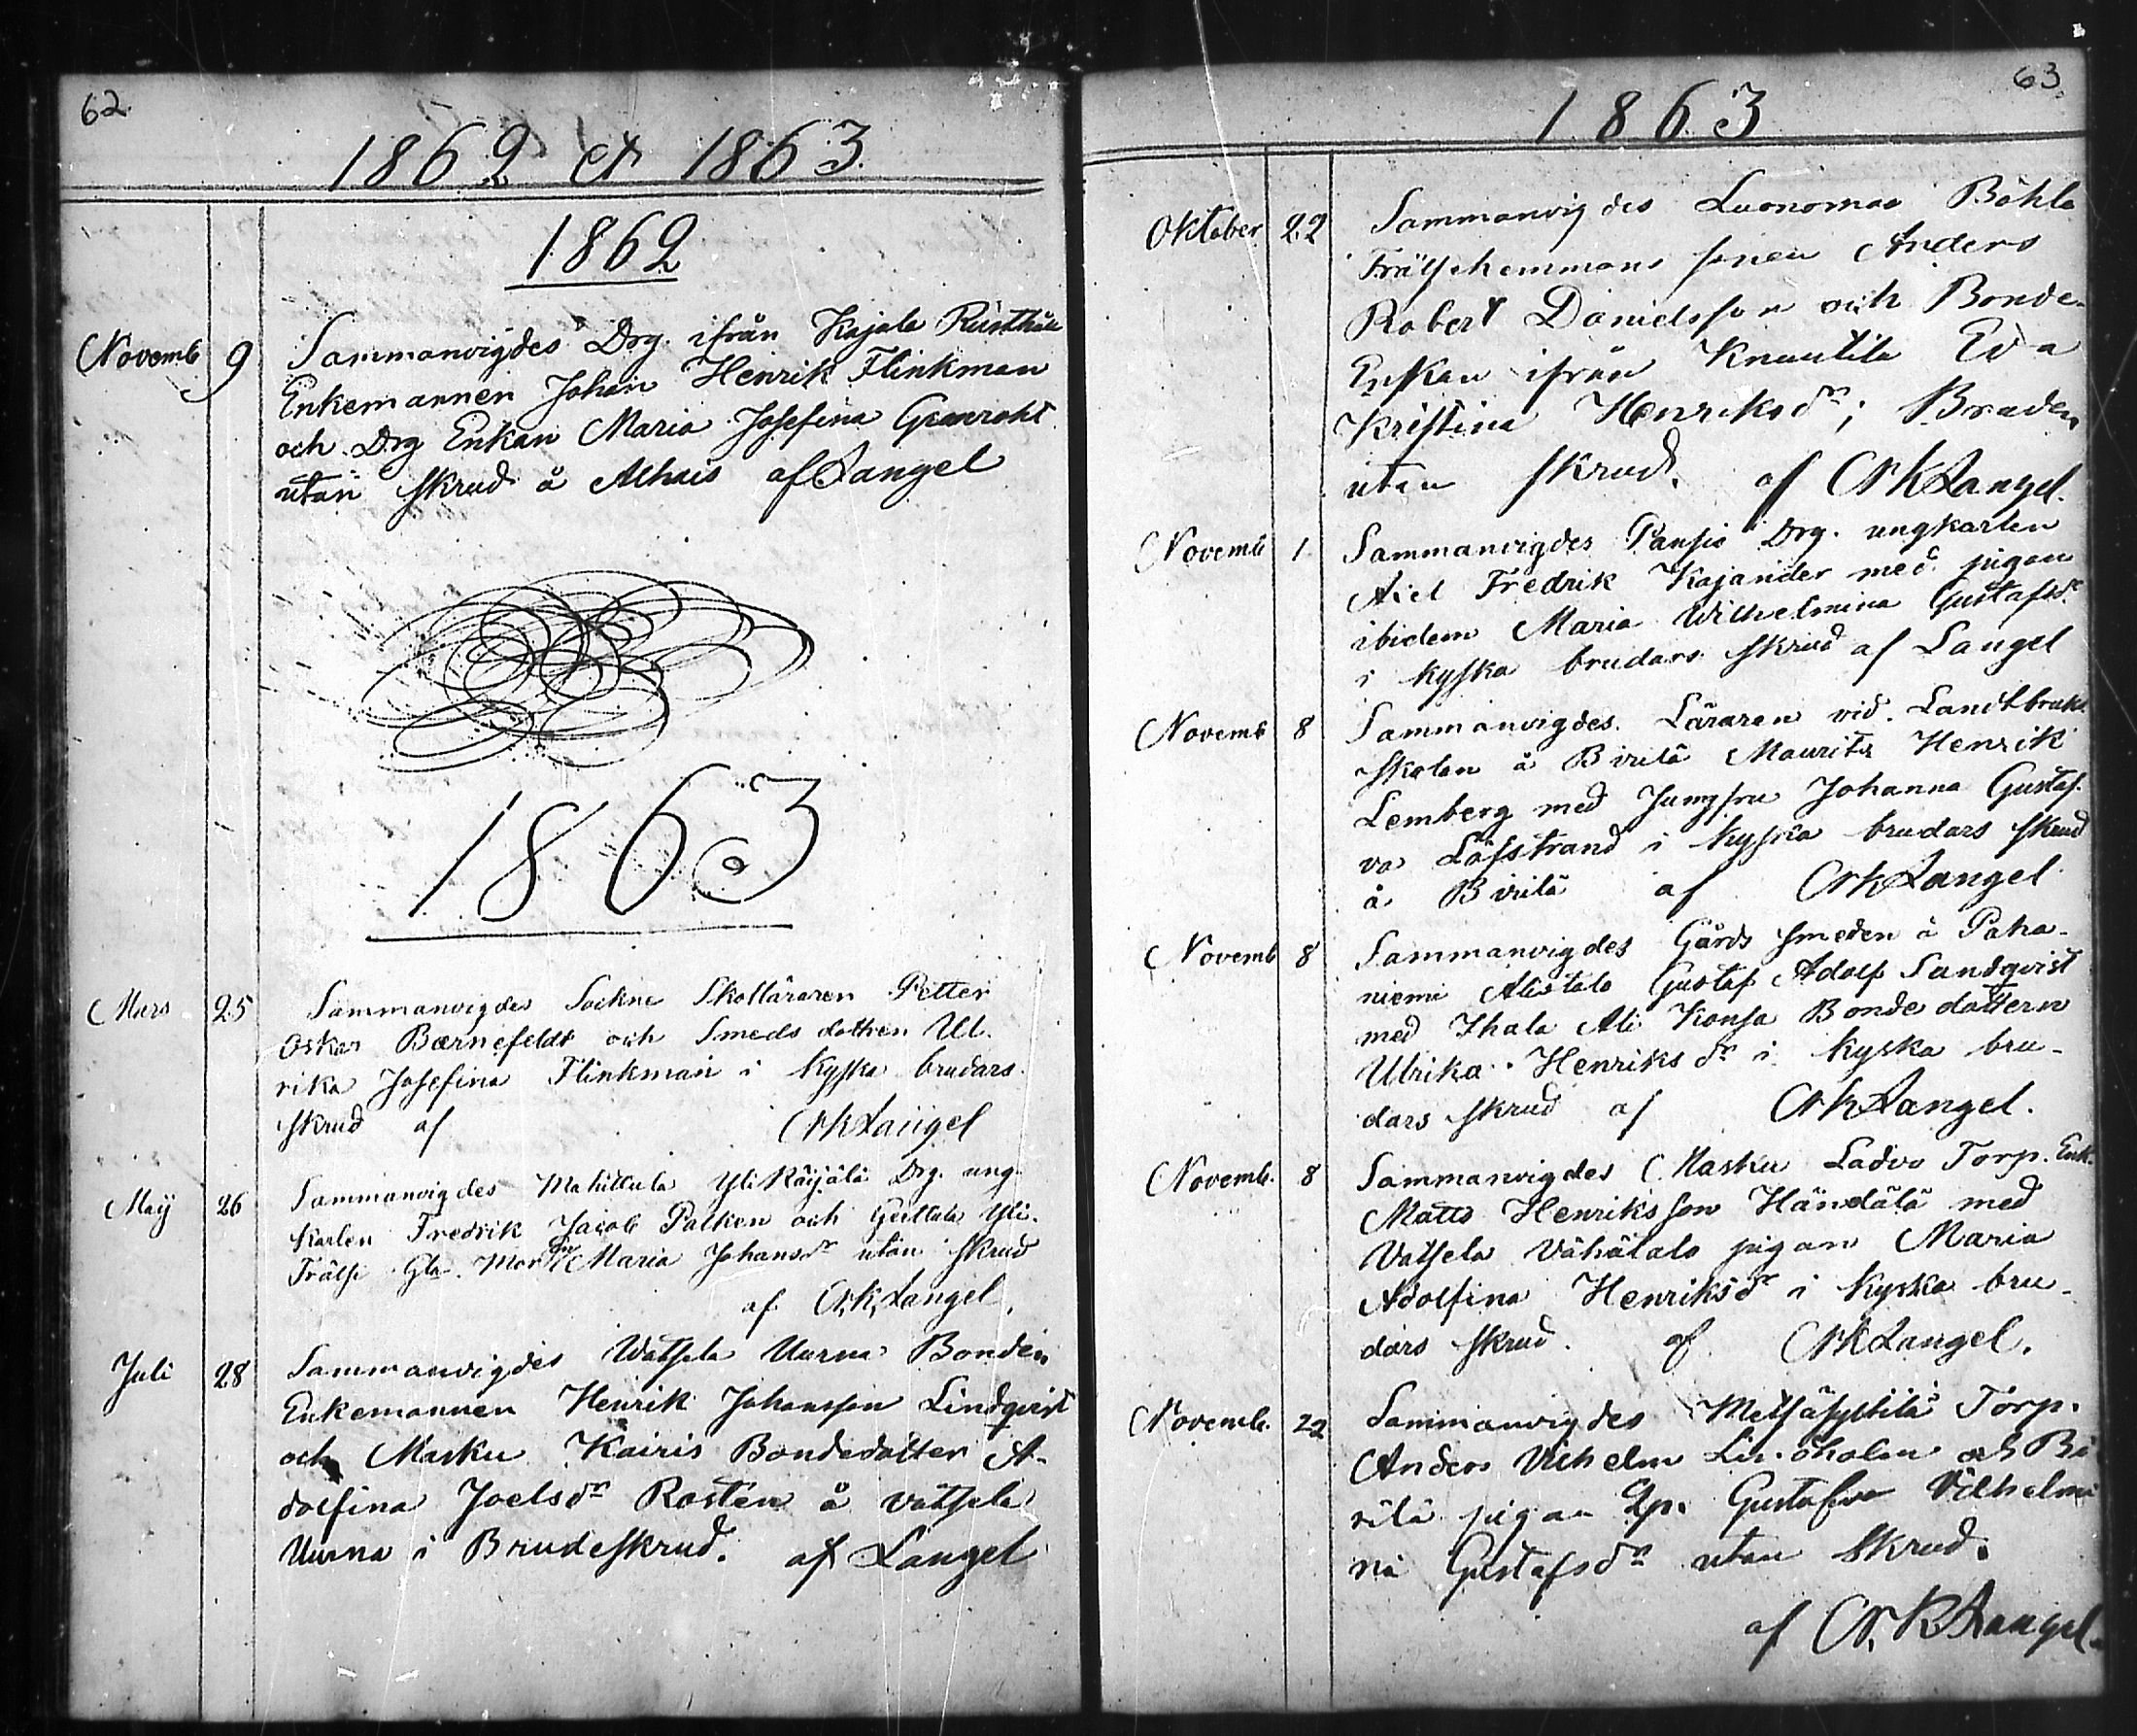 62
1862 et 1863
1862
Novemb 9 Sammanvigdes Drg. ifrån Kajala Rusthåll
Enkemannen Johan Henrik Flinkman
och Drg Enkan Maria Josefina Granroht
utan skrud å Alhais af Langel
1863
Mars 25 Sammanvigdes Sockne Skolläraren Petter
Oskar Bærnefeldt och Smeds dottren Ul-
rika Josefina Flinkman i kyska brudars
skrud af CrKLangel
Maÿ 26 Sammanvigdes Mahittula Yli Käÿälä Drg. ung-
karlen Fredrik Jacob Palken och Yli-
Frälse Maria Johansdr utan skrud
af Cr.K.Langel.
Juli 28 Sammanvigdes Watsela Uurna Bonden
Enkemannen Henrik Johansson Lindqvist
och Masku Kairis Bondedotter A-
dolfina Joelsdr Rosten å Vatsela
Uurna i Brudeskrud. af Langel
63
1863
Oktober 22 Sammanvigdes Luonomaa Böhle
Frälsehemmans sonen Anders
Robert Danielsson och Bonde-
Enkan ifrån Knuutila Eva
Kristina Henriksdr; Bruden
utan skrud. af CrKLangel.
Novemb 1 Sammanvigdes Pansio Drg. ungkarlen
Axel Fredrik Kajander med pigan
ibidem Maria Wilhelmina Gustafsdr
i kyska brudars skrud af Langel
Novemb 8 Sammanvigdes Läraren vid Landtbruks
skolan å Bviilä Maurits Henrik
Lemberg med Jungfru Johanna Gustaf-
va Löfstrand i kyska brudars skrud
å Bviilä af CrKLangel
Novemb 8 Sammanvigdes Gårds smeden å Paha-
niemi Alistalo Gustaf Adolf Sandqvist
med Ihala Ali Konsa Bonde dottern
Ulrika Henriksdr i kyska bru-
dars skrud af CrKLangel.
Novemb. 8 Sammanvigdes Masku Ladvo Torp. Enk.
Matts Henriksson Händälä med
Vatsela Vähätalo pigan Maria
Adolfina Henriksdr i kyska bru-
dars skrud. af CrKLangel.
Novemb. 22 Sammanvigdes Torp.
Anders Vilhelm Lindholm och
pigan Gustafva Vilhelmi
na Gustafsdr utan skrud.
af Cr.KLangel